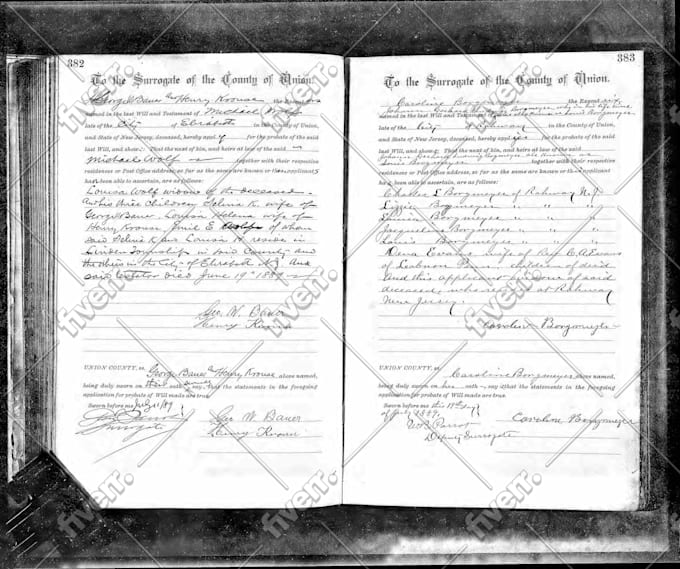 382
To the Surrogate of the County of Union.
George Bauer & Henry Krouse the Execut ors
named in the last Will and Testament of Michael Wolf
late of the City of Elizabeth in the County of Union,
and State of New Jersey, deceased, hereby apply for the probate of the said
last Will, and show: That the next of kin, and heirs at law of the said
Michael Wolf together with their respective
residences or Post Office address, so far as the same are known or applicant s
ha been able to ascertain, are as follows:
Louisa Wolf widow of the deceased
and his three children, Selma K. wife of
George Bauer, Louisa Helena wife of
Henry Krouse, Emil E Wolf of whom
said Selma K. and Louisa H reside in
Linden Township in said County and
the others in the City of Elizabeth N.J. and
said testator died June 19th 1889
Geo. W. Bauer
Henry Krouse
UNION COUNTY, ss. George Bauer & Henry Krouse above named,
being duly sworn on their oath say, that the statements in the foregoing
application for probate of Will made are true.
Sworn before me July
Surrogate
Geo W. Bauer
Henry Krouse
383
To the Surrogate of the County of Union.
Caroline Borgmeyer the Execut rix
named in the last Will and Testament
late of the City of Rahway in the County of Union,
and State of New Jersey, deceased, hereby applies for the probate of the said
last Will, and shows: That the next of kin, and heirs at law of the said
Louis Borgmeyer together with their respective
residences or Post Office address, so far as the same are known or this applicant
ha been able to ascertain, are as follows:
Charles L Borgmeyer of Rahway N.J.
Lizzie Borgmeyer " " "
Minnie Borgmeyer " " "
Jacqueline Borgmeyer " " "
Louis Borgmeyer " " "
Dena Evans wife of Rev. C. A. Evans
of Lebanon Penn. children of dec'd
and this applicant widow of said
deceased, who resides at Rahway
New Jersey.
Caroline Borgmeyer
UNION COUNTY, ss. Caroline Borgmeyer above named,
being duly sworn on her oath say, that the statements in the foregoing
application for probate of Will made are true.
Sworn before me this 17th day
of July 1889.
W.B. Parrot
Deputy Surrogate
Caroline Borgmeyer
fiverr.